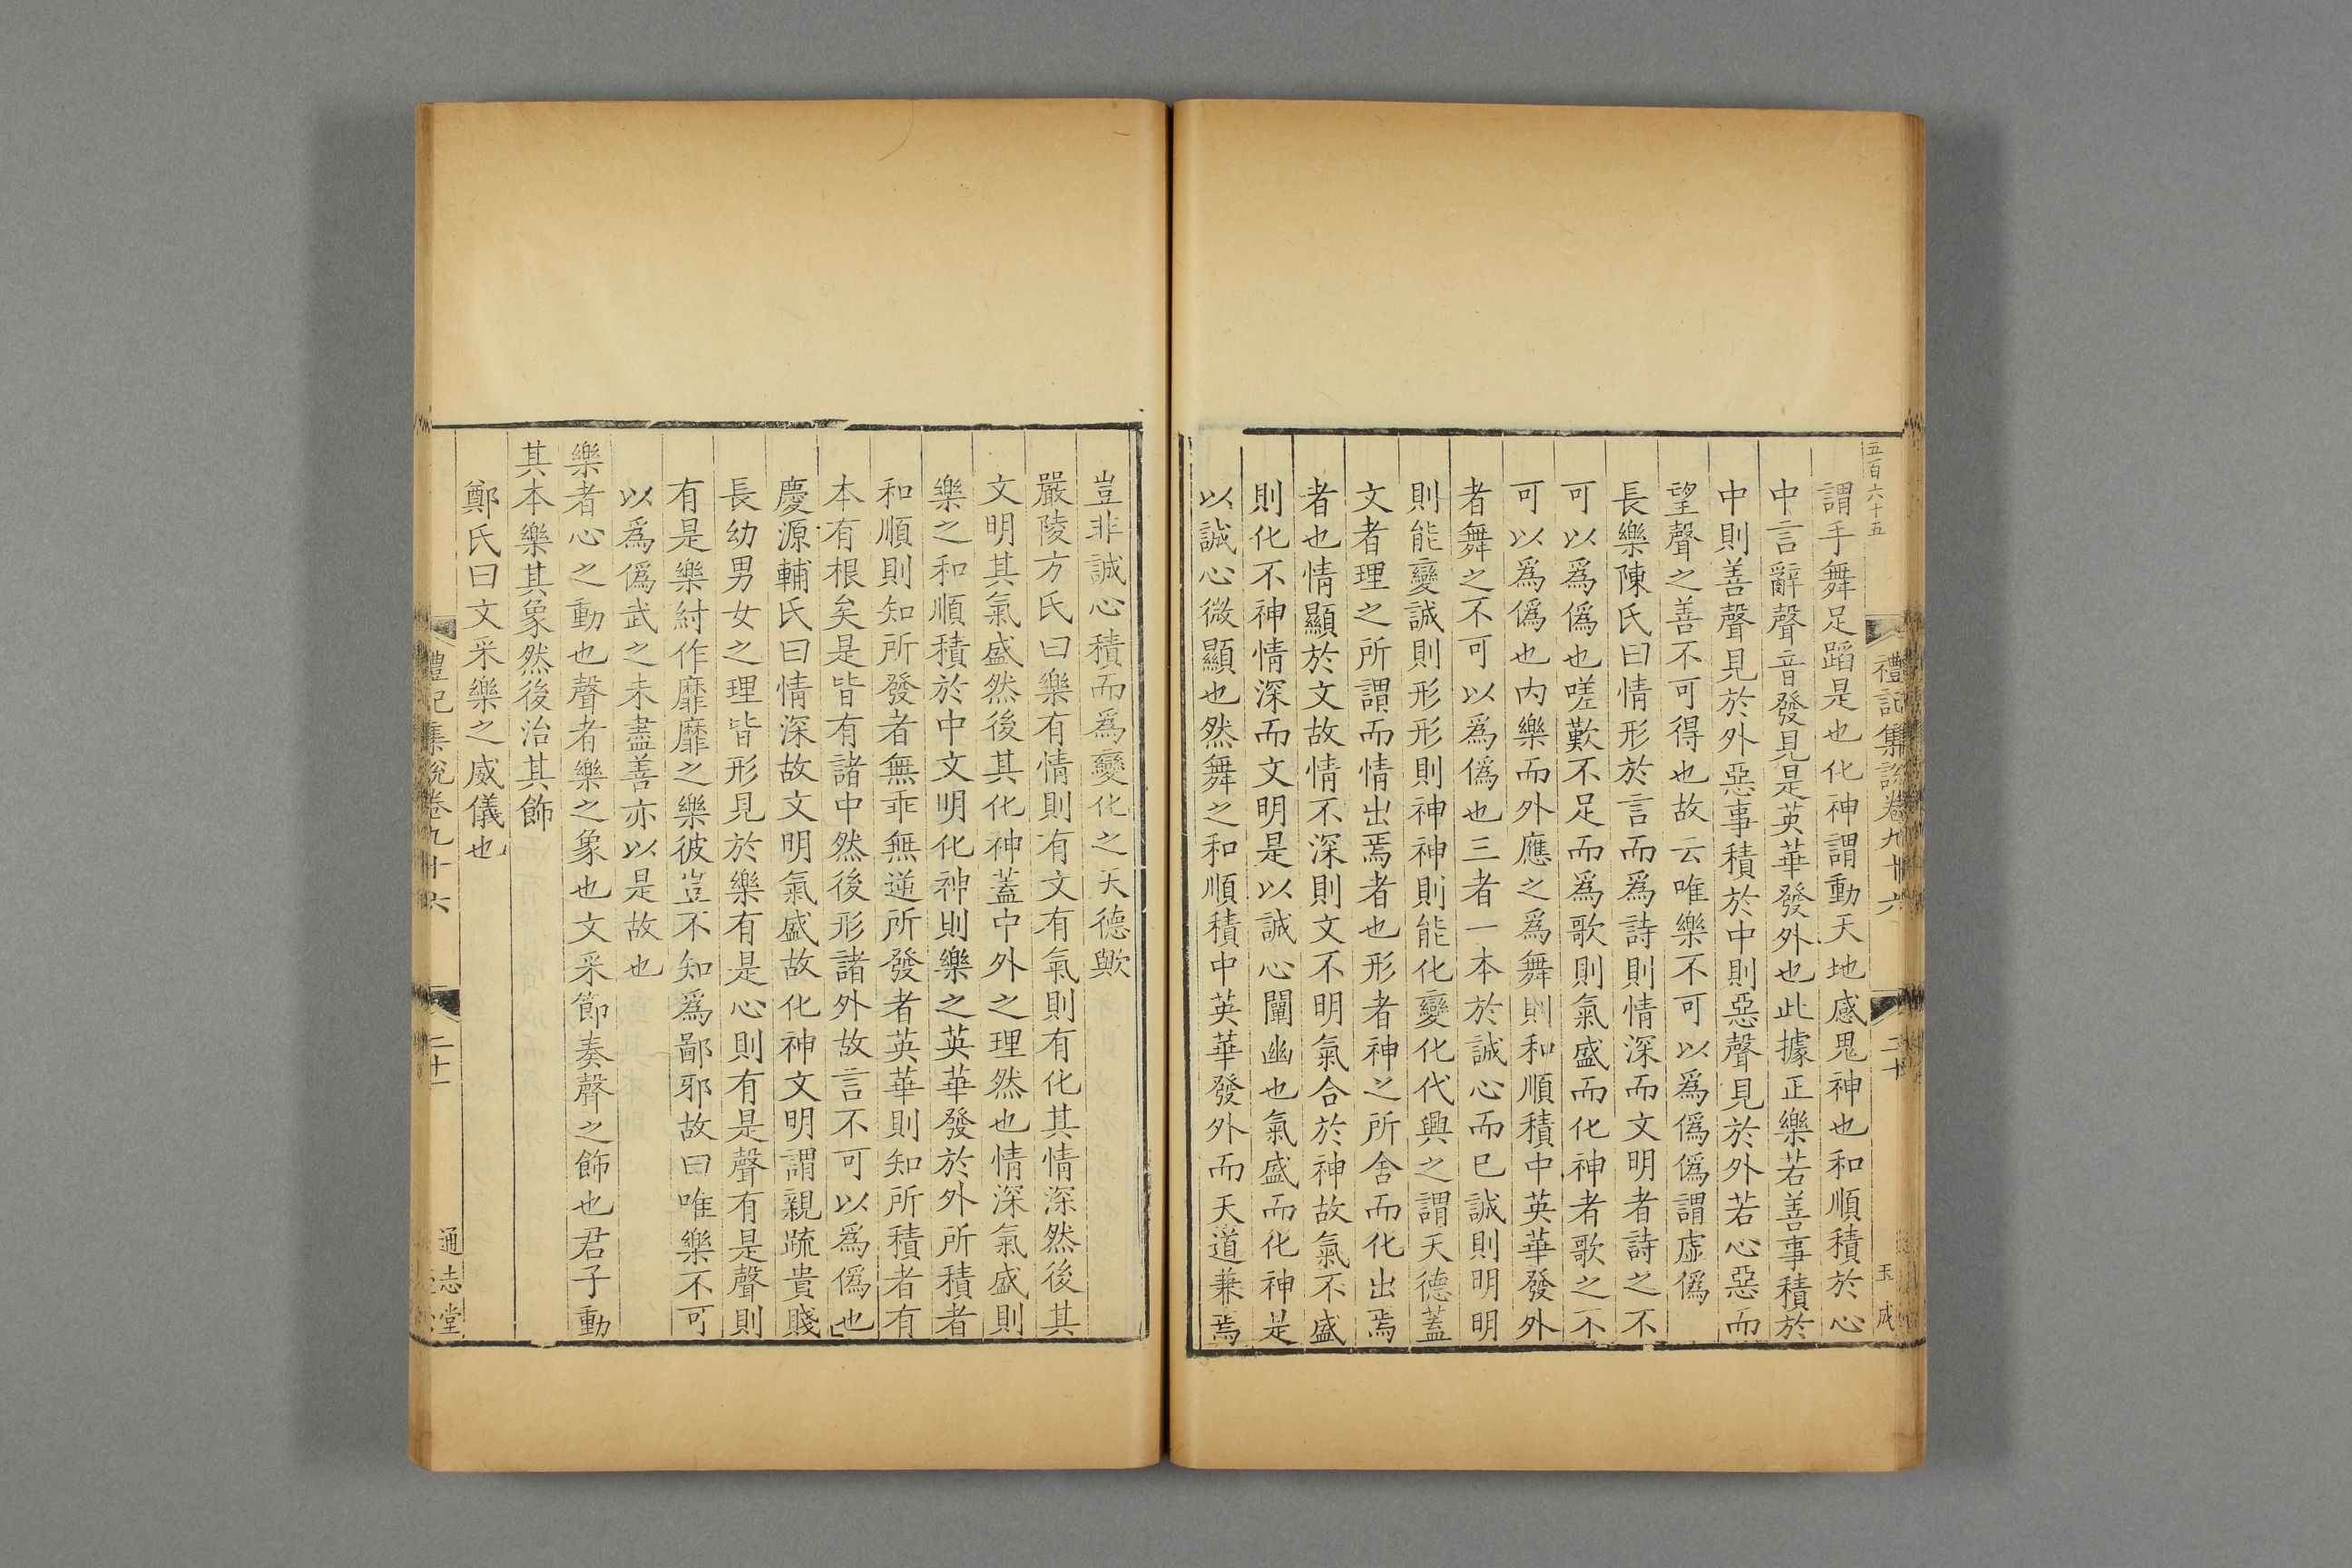 五百六十五
禮記集說卷九十六
二十
玉成
謂手舞足蹈是也化神謂動天地感鬼神也和順積於心
中言辭聲音發見是英華發外也此據正樂若善事積於
中則善聲見於外惡事積於中則惡聲見於外若心惡而
望聲之善不可得也故云唯樂不可以爲僞僞謂虛僞
長樂陳氏曰情形於言而爲詩則情深而文明者詩之不
可以爲僞也嗟歎不足而爲歌則氣盛而化神者歌之不
可以爲僞也内樂而外應之爲舞則和順積中英華發外
者舞之不可以爲僞也三者一本於誠心而已誠則明明
則能變誠則形形則神神則能化變化代興之謂天德蓋
文者理之所謂而情出焉者也形者神之所舍而化出焉
者也情顯於文故情不深則文不明氣合於神故氣不盛
則化不神情深而文明是以誠心闡幽也氣盛而化神是
以誠心微顯也然舞之和順積中英華發外而天道兼焉
豈非誠心積而爲變化之天德歟
嚴陵方氏曰樂有情則有文有氣則有化其情深然後其
文明其氣盛然後其化神蓋中外之理然也情深氣盛則
樂之和順積於中文明化神則樂之英華發於外所積者
和順則知所發者無乖無逆所發者英華則知所積者有
本有根矣是皆有諸中然後形諸外故言不可以爲僞也
慶源輔氏曰情深故文明氣盛故化神文明謂親疏貴賤
長幼男女之理皆形見於樂有是心則有是聲有是聲則
有是樂紂作靡靡之樂彼豈不知爲鄙邪故曰唯樂不可
以爲僞武之未盡善亦以是故也
樂者心之動也聲者樂之象也文采節奏聲之飾也君子動
其本樂其象然後治其飾
鄭氏曰文采樂之威儀也
禮記集說卷九十六
二十一
通志堂